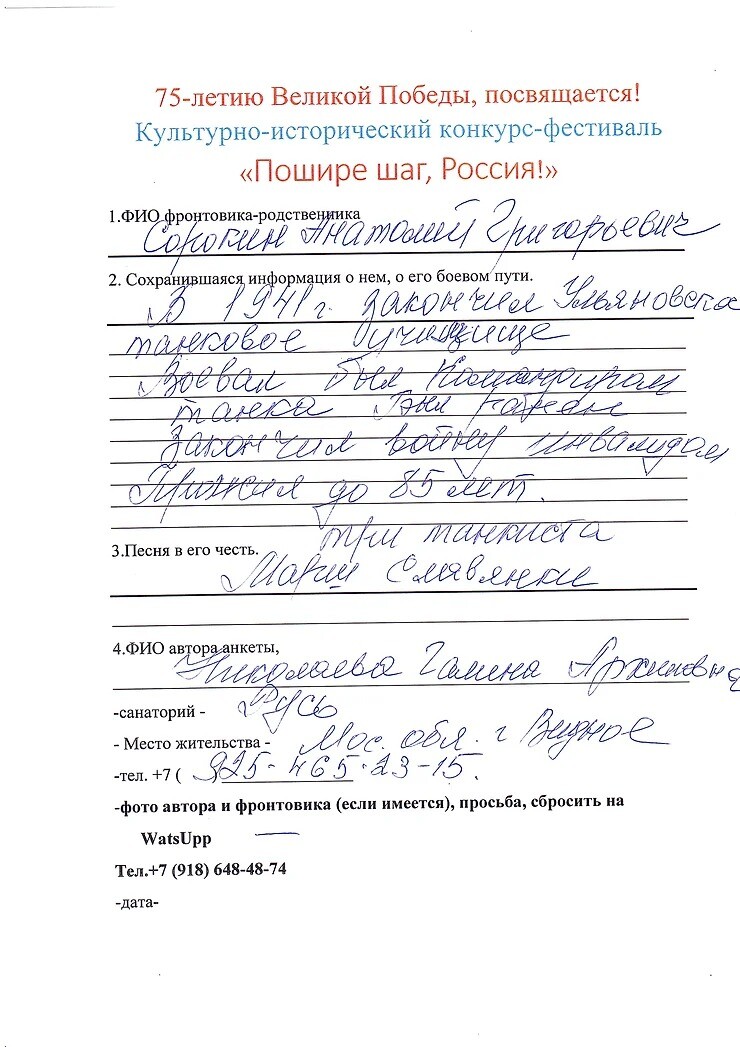 75-летию Великой Победы, посвящается!
Культурно-исторический конкурс-фестиваль
«Пошире шаг, Россия!»
1.ФИО фронтовика-родственника
Сорокин Анатолий Григорьевич
2. Сохранившаяся информация о нем, о его боевом пути.
В 1941 г. закончил Ульяновска
танковое училище
Воевал был Командиром
танка Был ранен
Закончил войну инвалидом
Прожил до 85 лет.
три танкиста
3.Песня в его честь.
Марш Славянки
4.ФИО автора анкеты,
Николаева Галина Архиповна
-санаторий - Русь
- Место жительства - Мос. обл. г Видное
-тел. +7 ( 925-465-23-15.
-фото автора и фронтовика (если имеется), просьба, сбросить на
WatsUpp
Тел.+7 (918) 648-48-74
-дата-